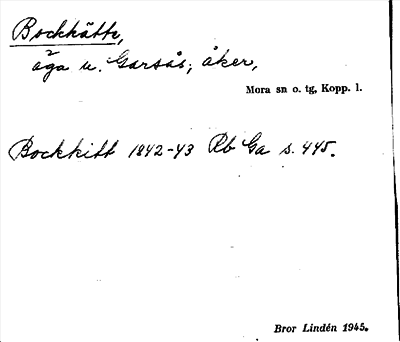 Bockhätte,
äga u. Garsås; åker,
Mora sn o. tg, Kopp. l.
Bockkitt 1842-43 Rb Ga s. 445.
Bror Lindén 1945.